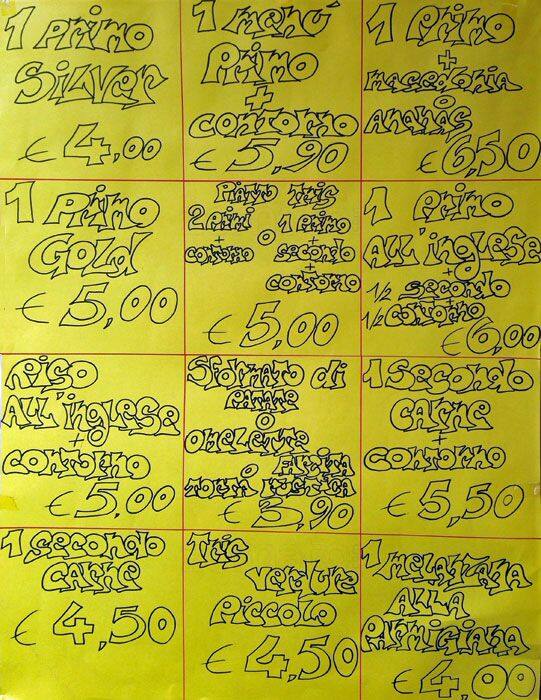 1 Primo
Silver
€ 4,00
1 menú
Primo
+
contorno
€ 5,90
1 Primo
+
macedonia
o
ananas
€ 6,50
1 Primo
Gold
€ 5,00
Piatto Tris
2 Primi
+
contorno
o
1 Primo
+
secondo
+
contorno
€ 5,00
1 Primo
All'inglese
+
1/2 secondo
+
1/2 contorno
€ 6,00
Riso
All'inglese
+
contorno
€ 5,00
Sformato di
Patate
o
omelette
o farcita
torta rustica
€ 3,90
1 Secondo
carne
+
contorno
€ 5,50
1 secondo
carne
€ 4,50
Tris
verdure
Piccolo
€ 4,50
1 melanzana
Alla
Parmigiana
€ 4 00